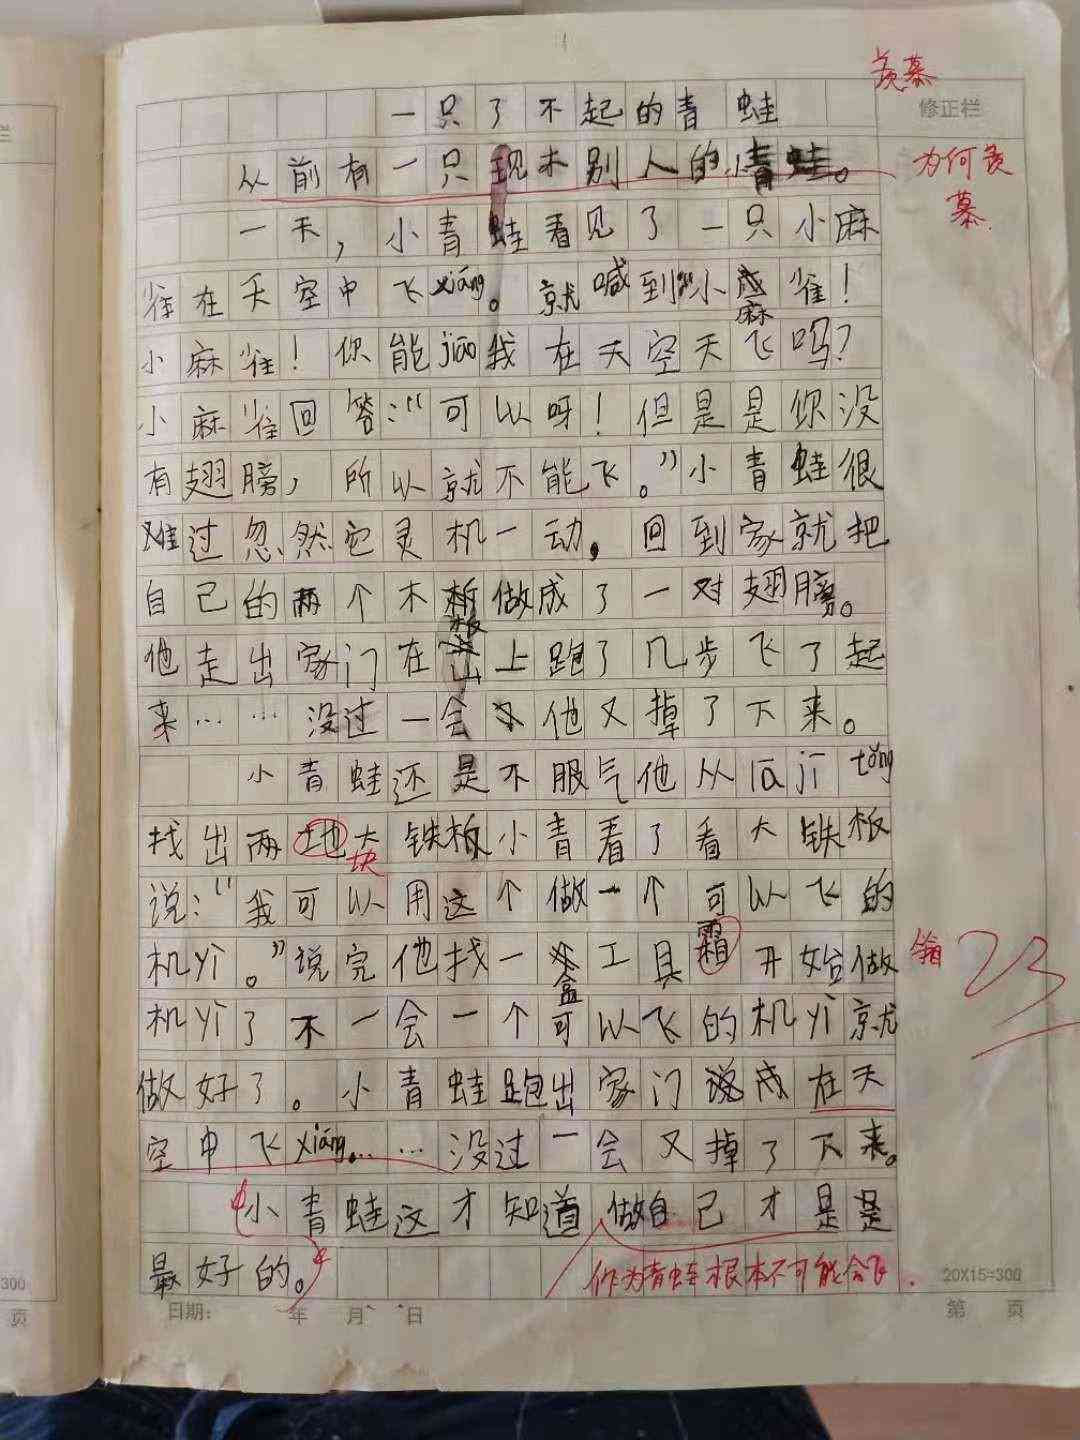 羡慕
一只了不起的青蛙
修正栏
从前有一只现木别人的小青蛙。
为何羡慕
一天，小青蛙看见了一只小麻
雀在天空中飞xiáng。就喊到“小麻雀！
小麻雀！你能jiāo我在天空天飞吗？
小麻雀回答：“可以呀！但是是你没
有翅膀，所以就不能飞。”小青蛙很
难过忽然它灵机一动。回到家就把
自己的两个木板做成了一对翅膀。
他走出家门在山上跑了几步飞了起
来……没过一会他又掉了下来。
小青蛙还是不服气他从lā jī tǒng
找出两地大铁板小青看了看大铁板
块
说：“我可以用这个做一个可以飞的
机yì。”说完他找一盒工具霜开始做
箱
23
机yì了不一会一个可以飞的机yì就
做好了。小青蛙跑出家门说成在天
空中飞xiáng……没过一会又掉了下来。
小青蛙这才知道做自己才是是
最好的。
作为青蛙根本不可能会飞.
20X15=300
日期： 年 月 日
第 页
栏
300
页